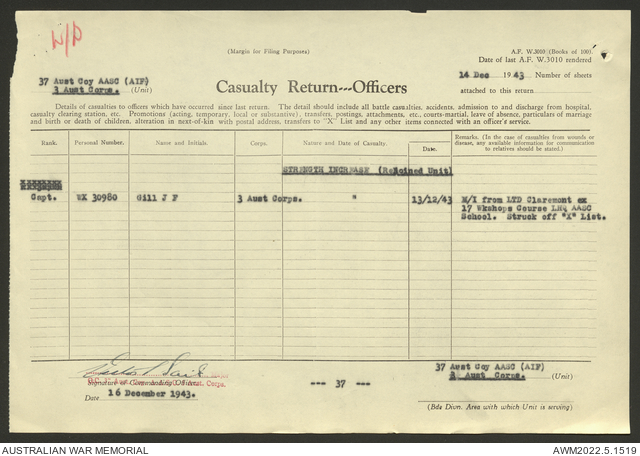 (Margin for Filing Purposes)
A.F. W.3010 (Books of 100).
Date of last A.F. W.3010 rendered
37 Aust Coy AASC (AIF)
3 Aust Corps. (Unit)
Casualty Return---Officers
14 Dec 1943 Number of sheets
attached to this return
Details of casualties to officers which have occurred since last return. The detail should include all battle casualties, accidents, admission to and discharge from hospital,
casualty clearing station, etc. Promotions (acting, temporary, local or substantive), transfers, postings, attachments, etc., courts-martial, leave of absence, particulars of marriage
and birth or death of children, alteration in next-of-kin with postal address, transfers to "X" List and any other items connected with an officer's service.
Rank. Personal Number. Name and Initials. Corps. Nature and Date of Casualty. Date. Remarks. (In the case of casualties from wounds or
disease, any available information for communication
to relatives should be stated.)
STRENGTH INCREASE (Rejoined Unit)
Capt. WX 30980 Gill J F 3 Aust Corps. " 13/12/43 M/I from LTD Claremont ex
17 Wkshops Course LHQ AASC
School. Struck off "X" List.
Signature of Commanding Officer
Date 16 December 1943.
--- 37 ---
37 Aust Coy AASC (AIF)
3 Aust Corps. (Unit)
(Bde Divn. Area with which Unit is serving)
AUSTRALIAN WAR MEMORIAL
AWM2022.5.1519